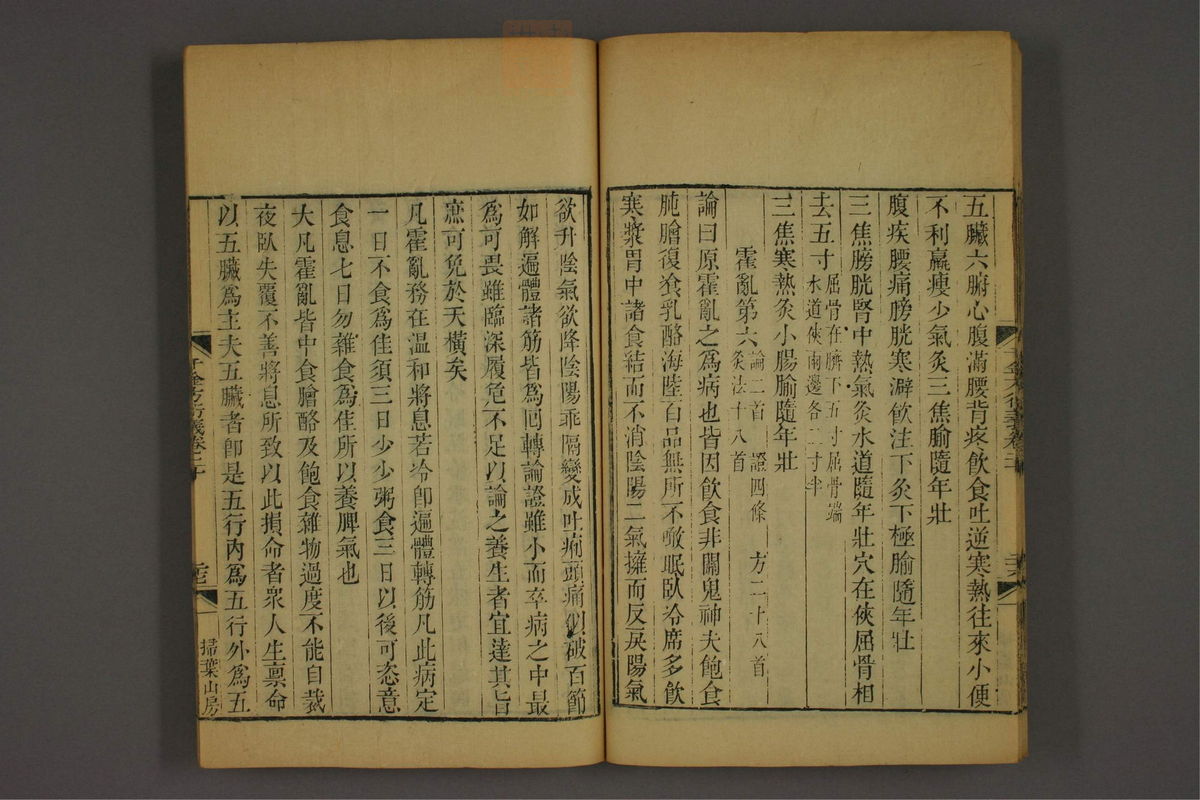 五臟六腑心腹滿腰背疼飲食吐逆寒熱往來小便
不利羸瘦少氣灸三焦腧隨年壯
腹疾腰痛膀胱寒澼飲注下灸下極腧隨年壯
三焦膀胱腎中熱氣灸水道隨年壯穴在俠屈骨相
去五寸屈骨在臍下五寸屈骨端
水道俠兩邊各二寸半
三焦寒熱灸小腸腧隨年壯
霍亂第六論二首 證四條 方二十八首
灸法十八首
論曰原霍亂之為病也皆因飲食非關鬼神夫飽食
肫膾復飡乳酪海陸百品無所不噉眠臥冷席多飲
寒漿胃中諸食結而不消陰陽二氣擁而反戾陽氣
欲升陰氣欲降陰陽乖隔變成吐痢頭痛似破百節
如解遍體諸筋皆為回轉論證雖小而卒病之中最
為可畏雖臨深履危不足以論之養生者宜達其旨
庶可免於夭橫矣
凡霍亂務在温和將息若冷卽遍體轉筋凡此病定
一日不食為佳須三日少少粥食三日以後可恣意
食息七日勿雜食為佳所以養脾氣也
大凡霍亂皆中食膾酪及飽食雜物過度不能自裁
夜臥失覆不善將息所致以此損命者衆人生禀命
以五臟為主夫五臟者卽是五行內為五行外為五
千金方衍義卷二十
掃葉山房